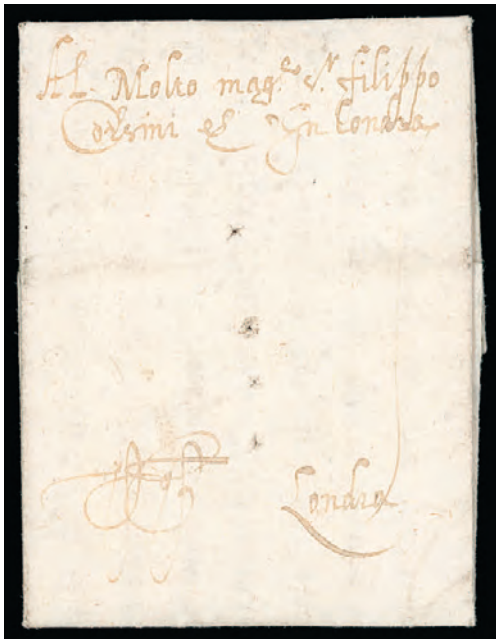 Al Molto mag.co S.r filippo
Corsini &c In Londra
Londra